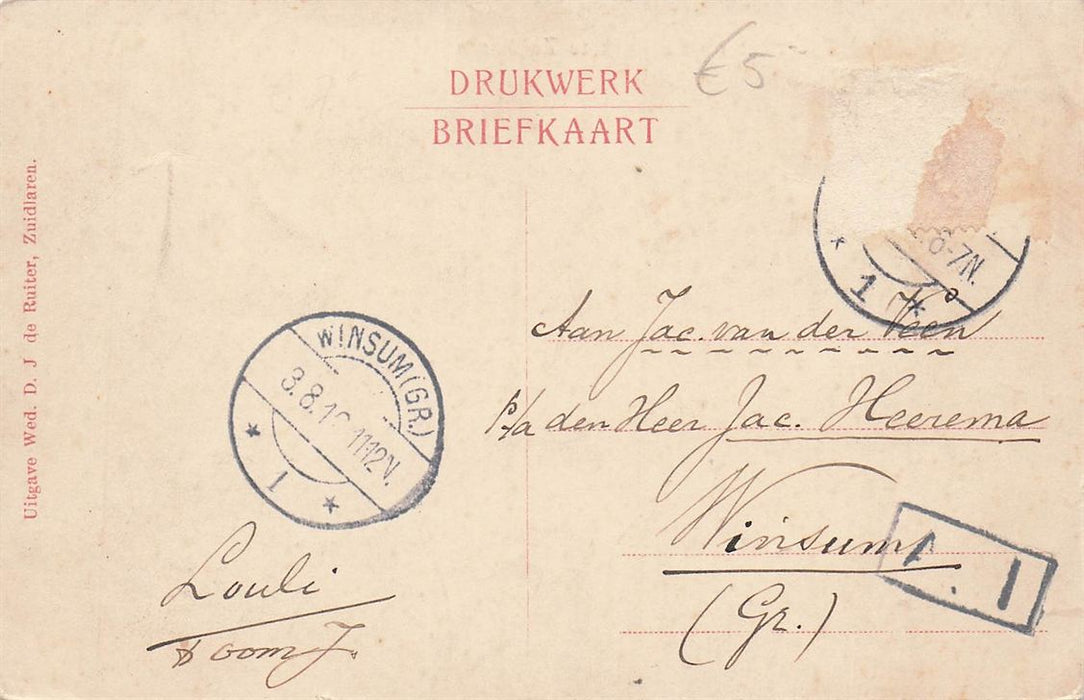 € 5-
DRUKWERK
BRIEFKAART
Uitgave Wed. D. J de Ruiter, Zuidlaren.
6-7N.
* 1 *
Aan Jac. van der Veen
p/a den Heer Jac. Heerema
Winsum
(Gr.)
A. 1
WINSUM (GR.)
3.8.1 11-12N.
* 1 *
Louli
oom J.